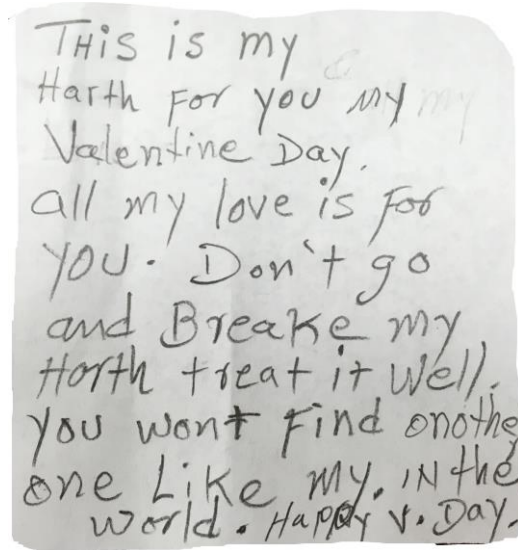 THis is my
Harth For you my my
Valentine Day.
all my love is For
YOU. Don't go
and Breake my
Horth treat it Well.
you wont Find onothe
one Like my. IN the
World. Happy V. Day.